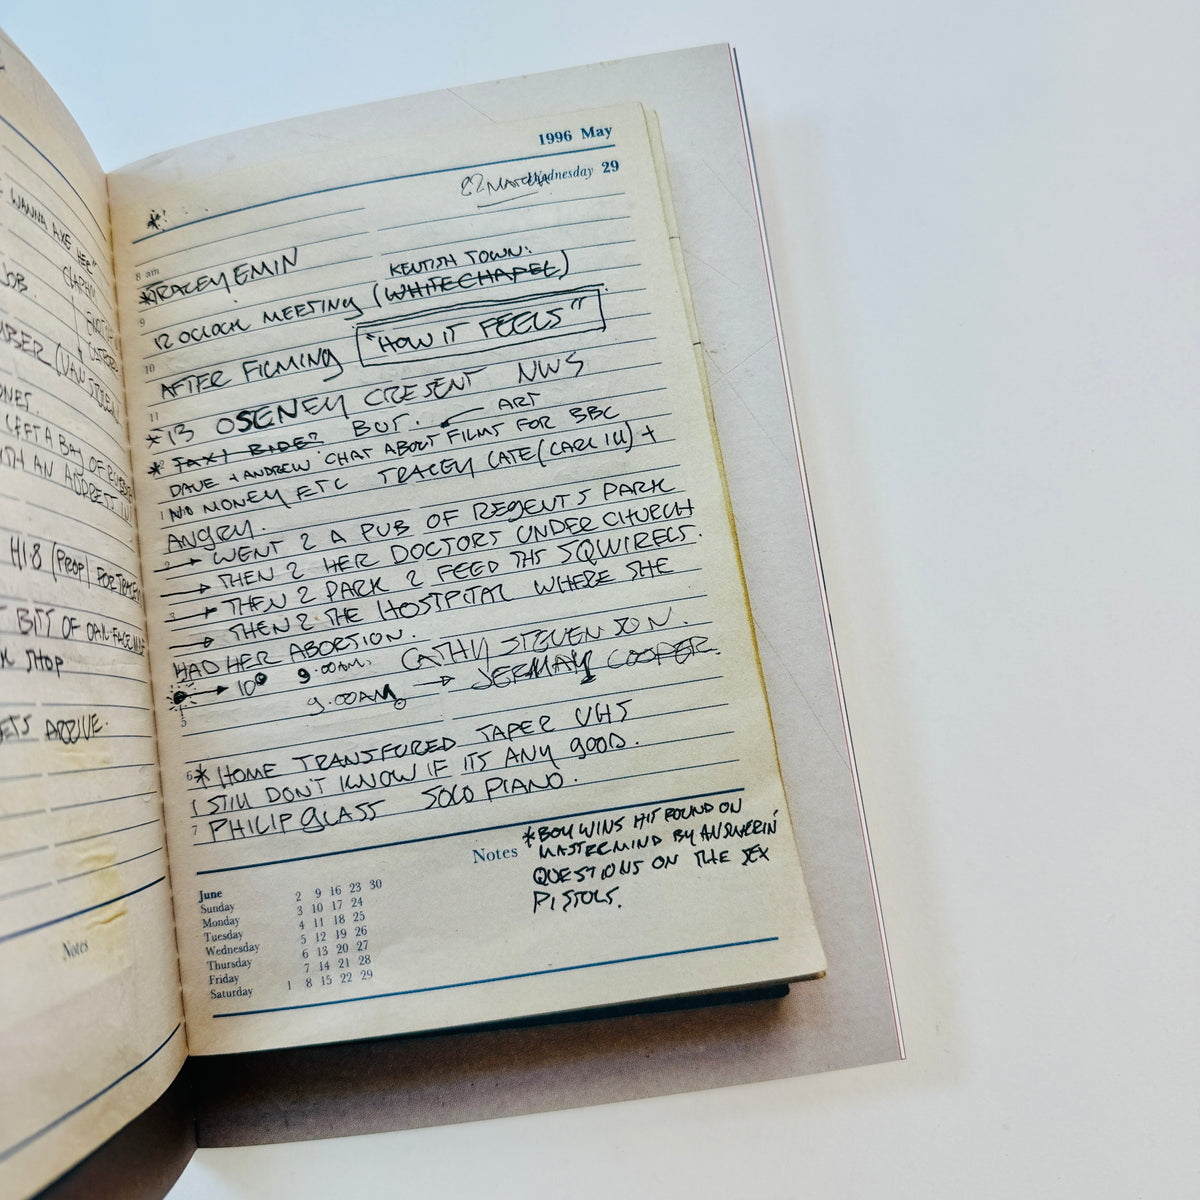 WANNA AXE HER"
JOB.
ONES.
LEFT A BAG OF RUBBISH
WITH AN ADDRESS IN
HI8 (PROP) FOR TRACEY
BIT OF
SHOP
ARRIVE.
Notes
1996 May
22 MARCH Wednesday 29
*
8 am
*TRACEY EMIN
KENTISH TOWN:
9
12 OCLOCK MEETING (WHITECHAPEL)
10
AFTER FILMING "HOW IT FEELS"
11
*13 OSENEY CRESENT NW5
* TAXI RIDE? BUT. ART
DAVE + ANDREW CHAT ABOUT FILMS FOR BBC
1 NO MONEY ETC TRACEY LATE (CARL ILL) +
ANGRY.
2 → WENT 2 A PUB OF REGENTS PARK
→ THEN 2 HER DOCTORS UNDER CHURCH
3 → THEN 2 PARK 2 FEED THS SQWIRELS.
→ THEN 2 THE HOSTPITAL WHERE SHE
HAD HER ABORTION.
→ 10 9.00AM. CATHY STEVENSON.
5 9.00AM → JERMAY COOPER.
6 * HOME TRANSFURED TAPER VHS
I STILL DON'T KNOW IF ITS ANY GOOD.
7 PHILIP GLASS SOLO PIANO.
Notes *BOY WINS HIT ROUND ON
MASTERMIND BY ANSWERIN'
QUESTIONS ON THE SEX
PISTOLS.
June
Sunday 2 9 16 23 30
Monday 3 10 17 24
Tuesday 4 11 18 25
Wednesday 5 12 19 26
Thursday 6 13 20 27
Friday 7 14 21 28
Saturday 1 8 15 22 29